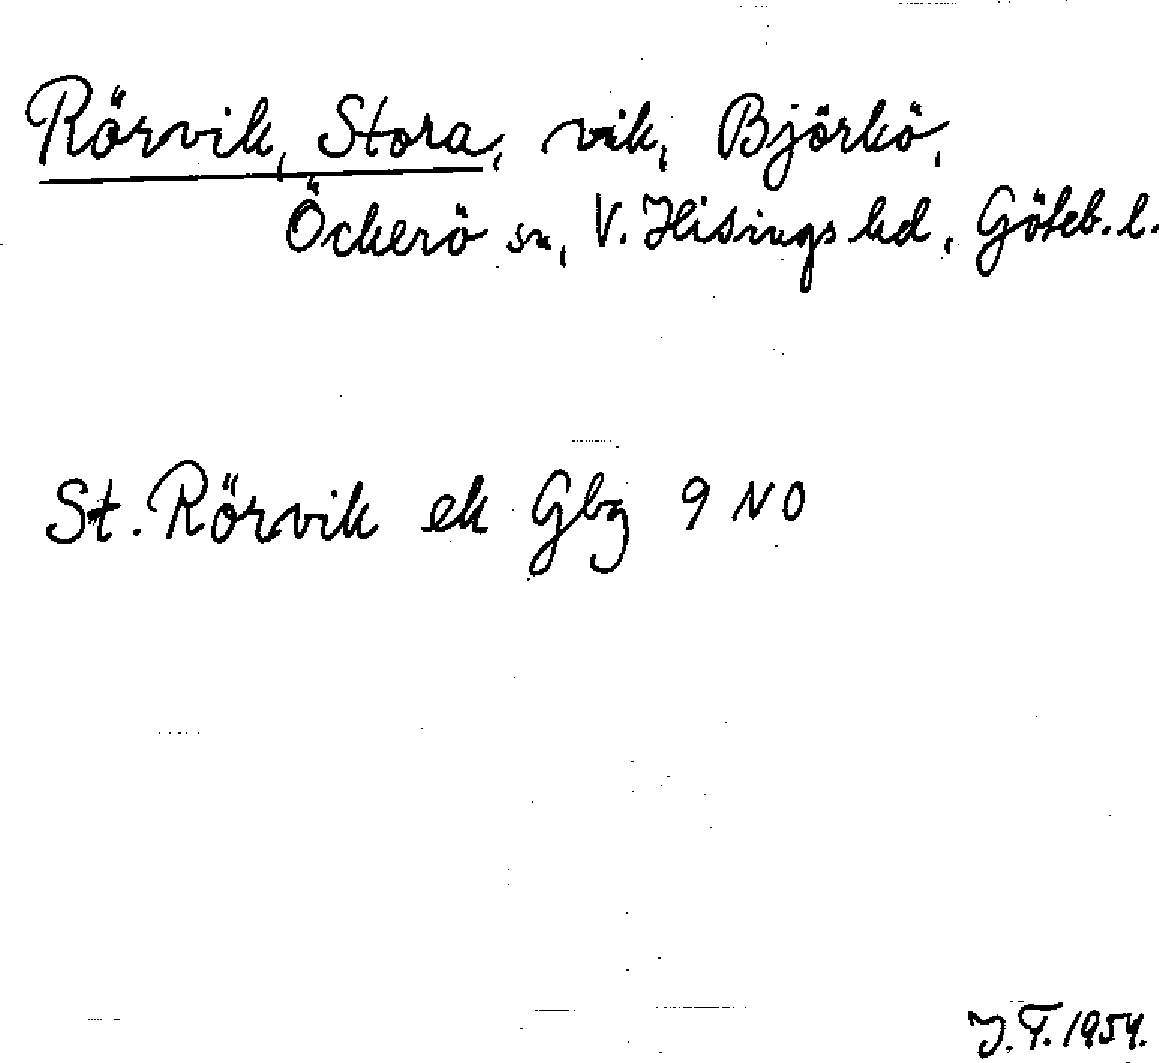 Rörvik, Stora, vik, Björkö,
Öckerö sn, V. Hisings hd, Göteb. l.
St. Rörvik ek Gbg 9 NO
J. F. 1954.